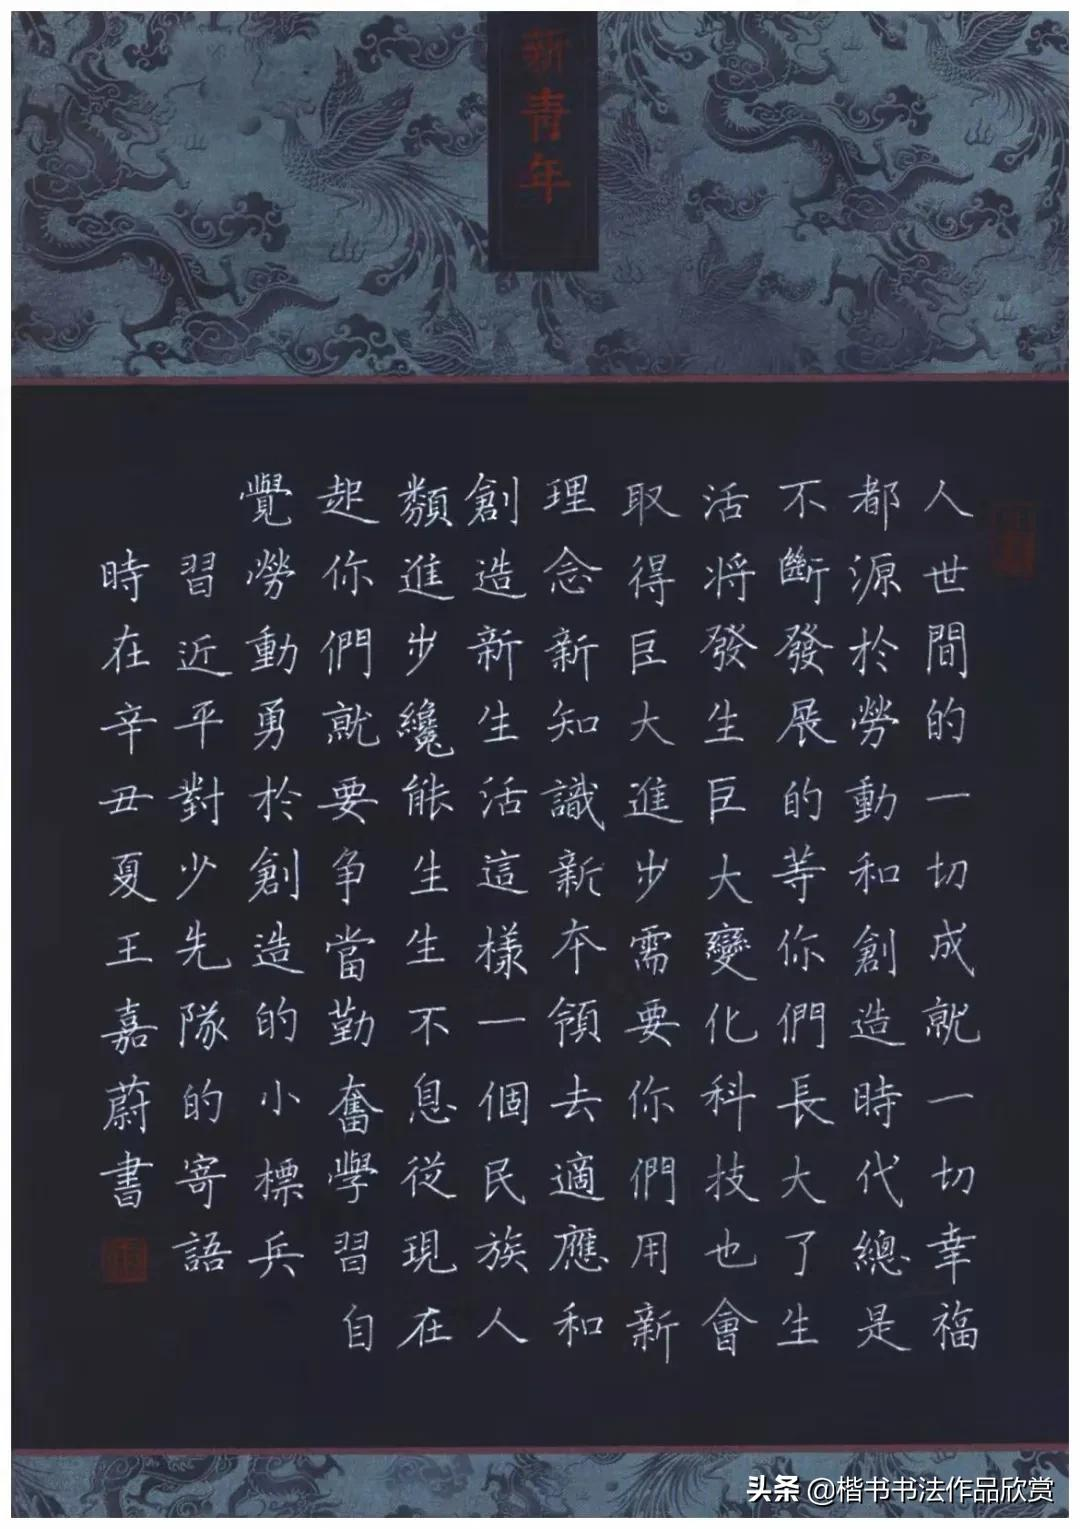 新青年
人世間的一切成就一切幸福
都源於勞動和創造時代總是
不斷發展的等你們長大了生
活將發生巨大變化科技也會
取得巨大進步需要你們用新
理念新知識新本領去適應和
創造新生活這樣一個民族人
類進步纔能生生不息從現在
起你們就要爭當勤奮學習自
覺勞動勇於創造的小標兵
習近平對少先隊的寄語
時在辛丑夏王嘉蔚書
头条 @楷书书法作品欣赏